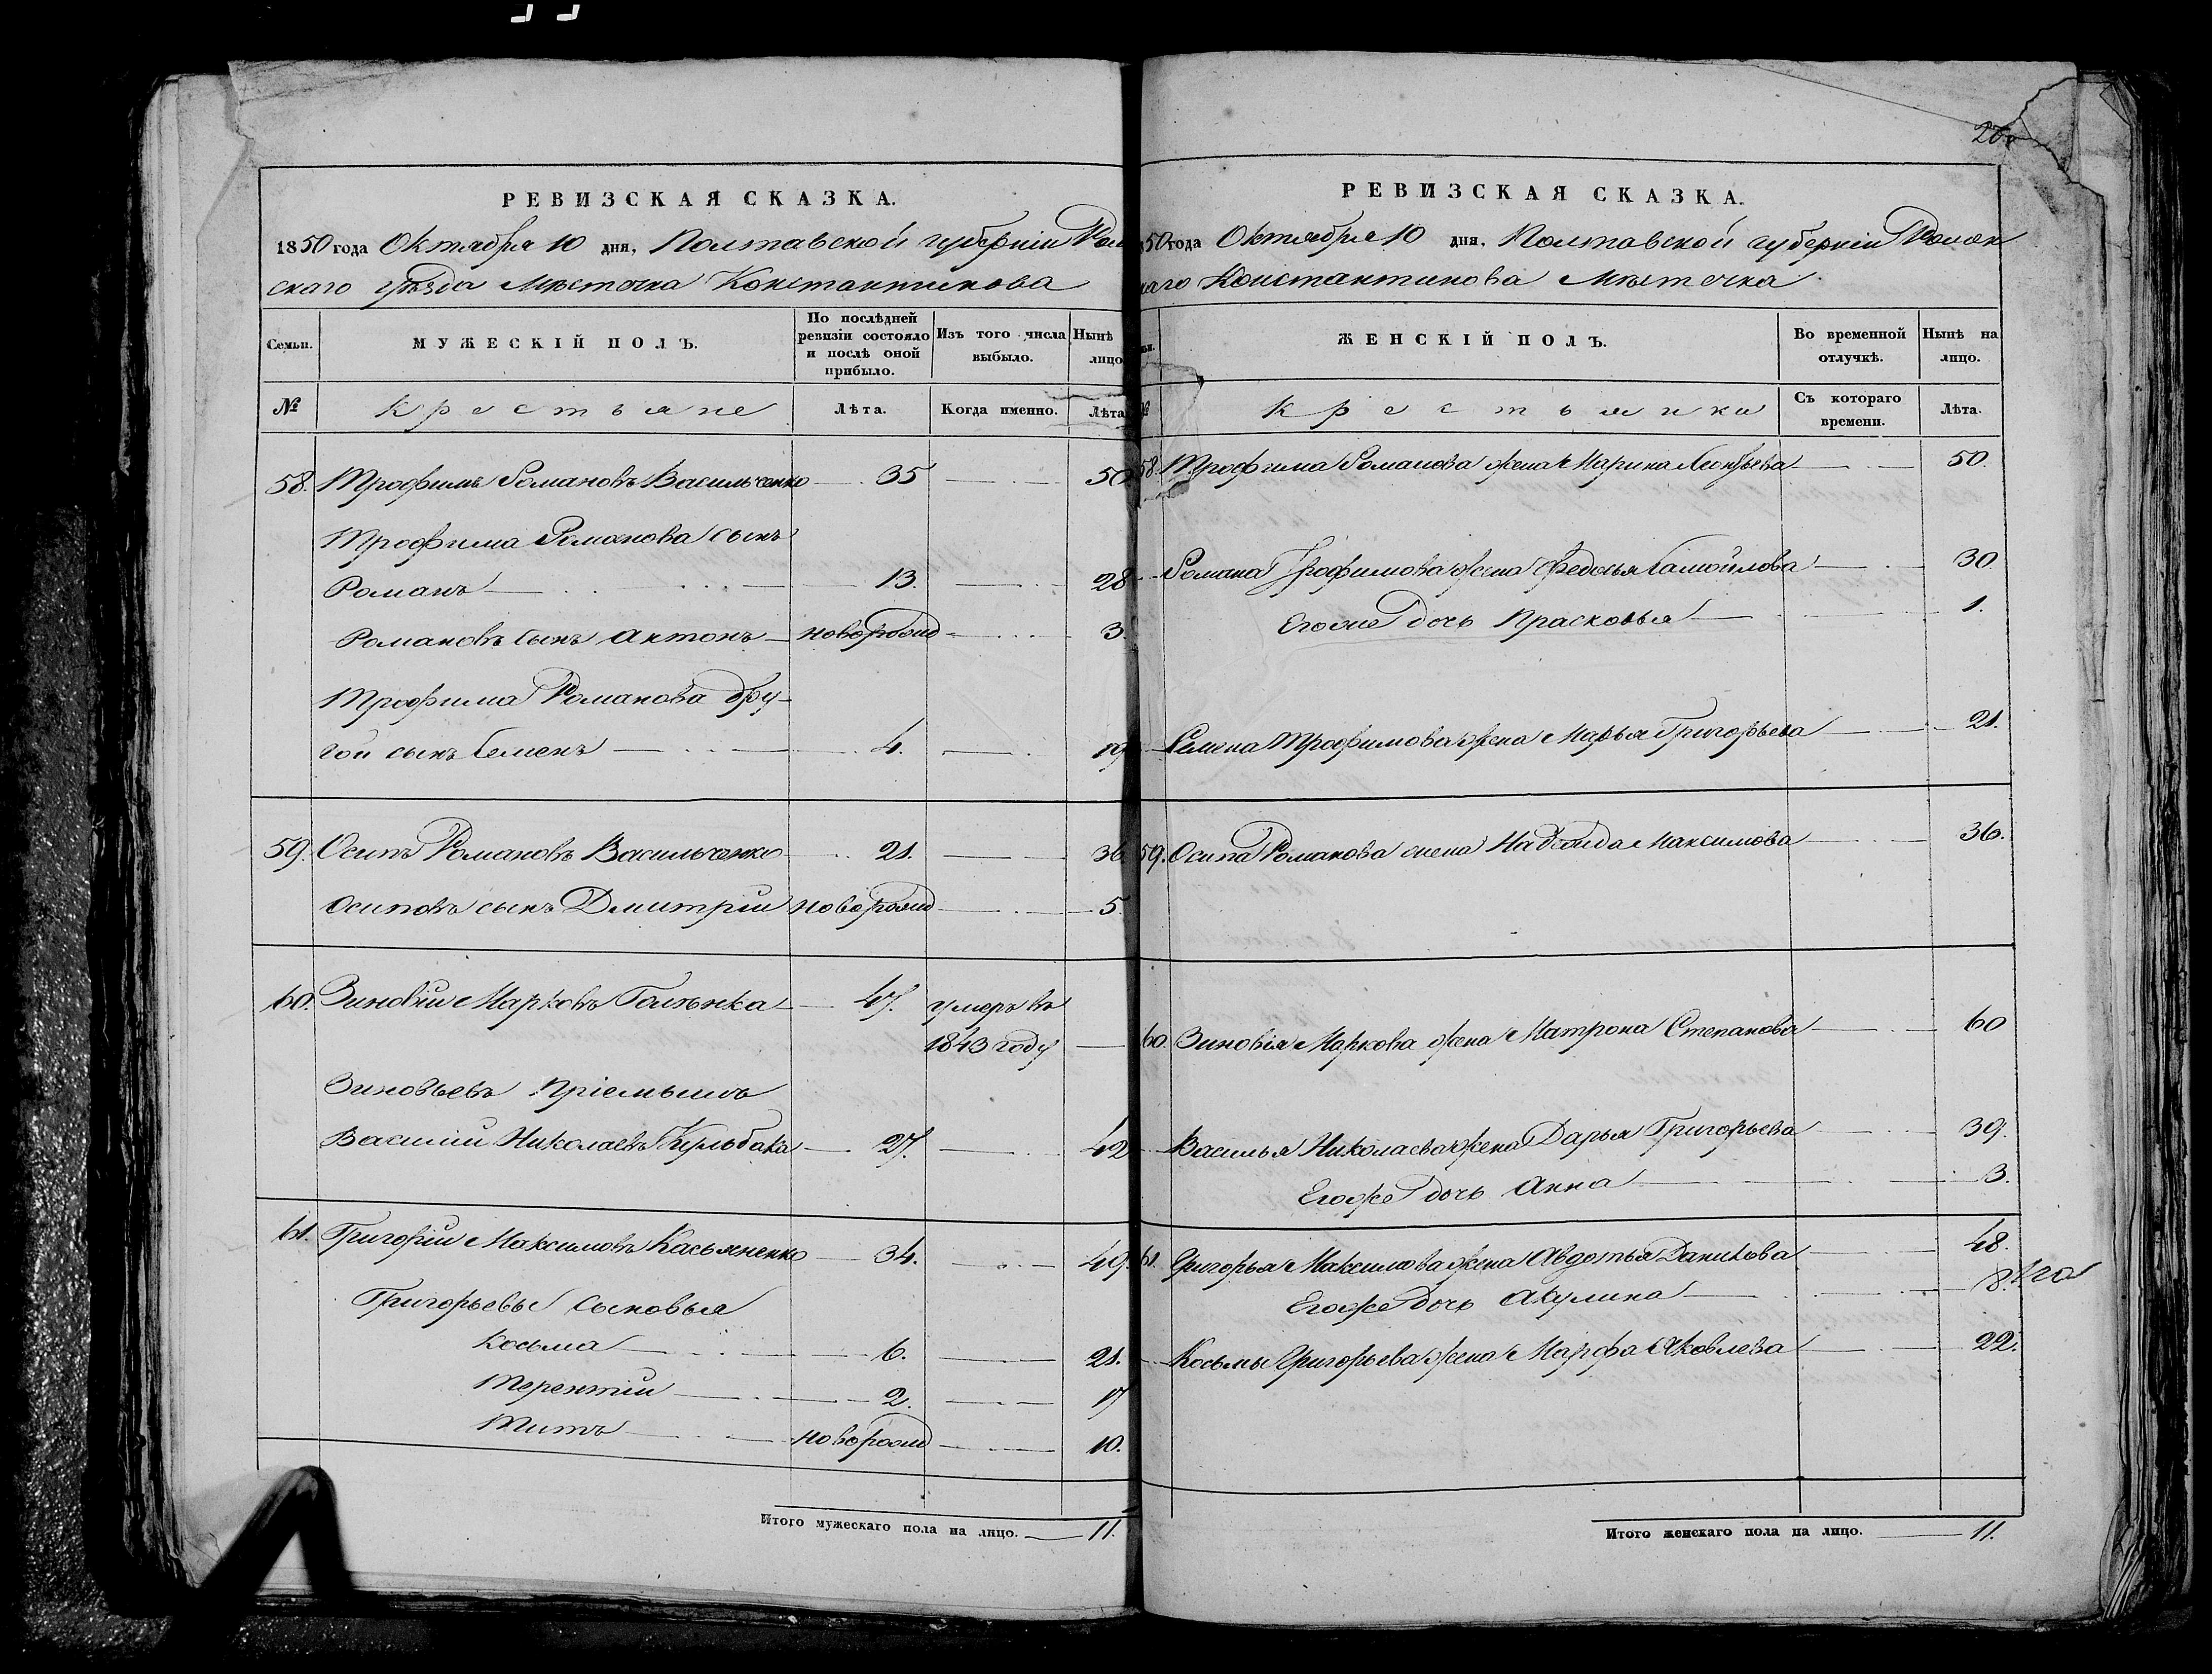 РЕВИЗСКАЯ СКАЗКА.
1850 года Октября 10 дня, Полтавской губерніи Ром
скаго уѣзда Мѣстечка Константинова
Семьи.
МУЖЕСКІЙ ПОЛЪ.
По послѣдней ревизіи состояло и послѣ оной прибыло.
Изъ того числа выбыло.
Нынѣ лицо
№ Крестьяне Лѣта. Когда именно. Лѣта
58. Трофимъ Романовъ Васильченко 35 50
Трофима Романова сынъ
Романъ 13. 28
Романовъ сынъ Антонъ новорожд 3.
Трофима Романова дру-
гой сынъ Семенъ 4. 19
59. Осипъ Романовъ Васильченко 21. 36
Осиповъ сынъ Дмитрій новорожд 5.
60. Зиновій Марковъ 47. умеръ въ
1843 году
Зиновьевъ пріемышъ
Василій Николаевъ Кульбака 27. 42
61. Григорій Максимовъ Касьяненко 34. 49.
Григорьевы сыновья
Косьма 6. 21.
Терентій 2. 17
Титъ новорожд 10.
Итого мужескаго пола на лицо. 11.
РЕВИЗСКАЯ СКАЗКА.
50 года Октября 10 дня, Полтавской губерніи Ромен
каго Константинова Мѣстечка
ЖЕНСКІЙ ПОЛЪ.
Во временной отлучкѣ.
Нынѣ на лицо.
№ Крестьянки Съ котораго времени. Лѣта.
58. Трофима Романова жена Марина Леонтьева 50.
Романа Трофимова жена Федосья Самойлова 30.
Егоже дочь Прасковья 1.
Семена Трофимова жена Марья Григорьева 21.
59. Осипа Романова жена Максимова 36.
60. Зиновія Маркова жена Матрона Степанова 60
Василья Николаева жена Дарья Григорьева 39.
Егоже дочь Анна 3.
61. Григорья Максимова жена Авдотья Данилова 48.
Егоже дочь Акулина 8.
Косьмы Григорьева жена Марфа Яковлева 22.
Итого женскаго пола на лицо. 11.